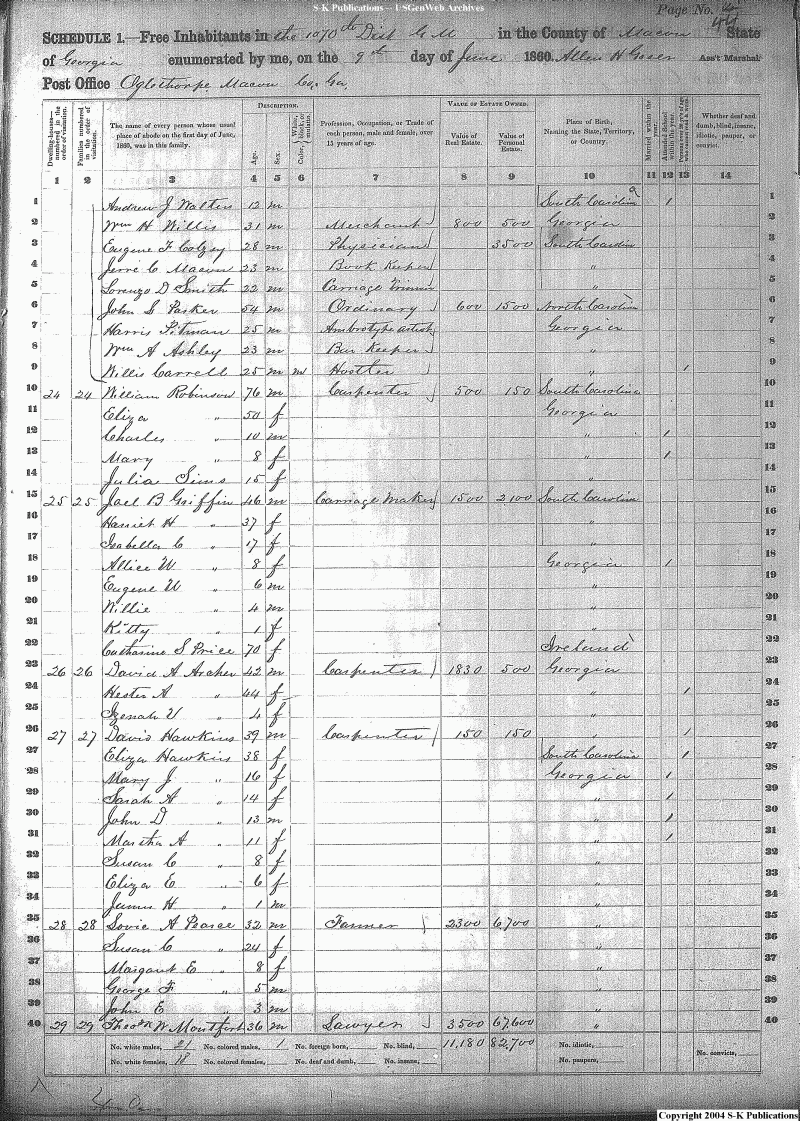 S-K Publications -- USGenWeb Archives
Page No. 44
SCHEDULE 1.—Free Inhabitants in the 1070th Dist G. M in the County of Macon State
of Georgia enumerated by me, on the 9th day of June 1860. Allen H Ass't Marshal
Post Office Oglethorpe Macon Co. Ga.
Dwelling-houses—numbered in the order of visitation.
Families numbered in the order of visitation.
The name of every person whose usual place of abode on the first day of June, 1860, was in this family.
DESCRIPTION.
Age.
Sex.
Color, White, black, or mulatto.
Profession, Occupation, or Trade of each person, male and female, over 15 years of age.
VALUE OF ESTATE OWNED.
Value of Real Estate.
Value of Personal Estate.
Place of Birth, Naming the State, Territory, or Country.
Married within the year.
Attended School within the year.
Whether deaf and dumb, blind, insane, idiotic, pauper, or convict.
1 2 3 4 5 6 7 8 9 10 11 12 13 14
1 Andrew J 12 m South Carolina 1 1
2 Wm H Willis 31 m Merchant 800 500 Georgia 2
3 Eugene F 28 m Physician 3500 South Carolin 3
4 Jerre C Macon 23 m Book Keeper " 4
5 Lorenzo D Smith 22 m Carriage Trimmer " 5
6 John S Parker 54 m Ordinary 600 1500 North Carolina 6
7 Harris Pitman 25 m Ambrotype artist Georgia 7
8 Wm A Ashley 23 m Bar Keeper " 8
9 Willis Carrell 25 m m Hostler " 1 9
10 24 24 William Robinson 76 m Carpenter 500 150 South Carolina 10
11 Eliza " 50 f Georgia 11
12 Charles " 10 m " 1 12
13 Mary " 8 f " 1 13
14 Julia Sims 15 f " 14
15 25 25 Joel B Griffin 46 m Carriage Maker 1500 2100 South Carolina 15
16 Harriet H " 37 f " 16
17 Isabella C " 17 f " 17
18 Allice W " 8 f Georgia 1 18
19 Eugene W " 6 m " 19
20 Willie " 4 m " 20
21 Kitty " 1 f " 21
22 Catharine S Price 70 f Ireland 22
23 26 26 David A Archer 42 m Carpenter 1830 500 Georgia 23
24 Hester A " 44 f " 1 24
25 " 4 f " 25
26 27 27 David Hawkins 39 m Carpenter 150 150 " 1 26
27 Eliza Hawkins 38 f South Carolina 1 27
28 Mary J " 16 f Georgia 1 28
29 Sarah A " 14 f " 1 29
30 John D " 13 m " 1 30
31 Martha A " 11 f " 1 31
32 Susan C " 8 f " 32
33 Eliza E " 6 f " 33
34 James H " 1 m " 34
35 28 28 A Pearce 32 m Farmer 2300 6700 " 35
36 Susan C " 24 f " 36
37 Margaret E " 8 f " 37
38 George F " 5 m " 38
39 John E " 3 m " 39
40 29 29 W Montfort 36 m Lawyer 3500 67,600 " 40
No. white males, 21 No. colored males, 1 No. foreign born, No. blind, 11,180 82,700 No. idiotic, No. convicts,
No. white females, 18 No. colored females, No. deaf and dumb, No. insane, No. paupers,
Copyright 2004 S-K Publications